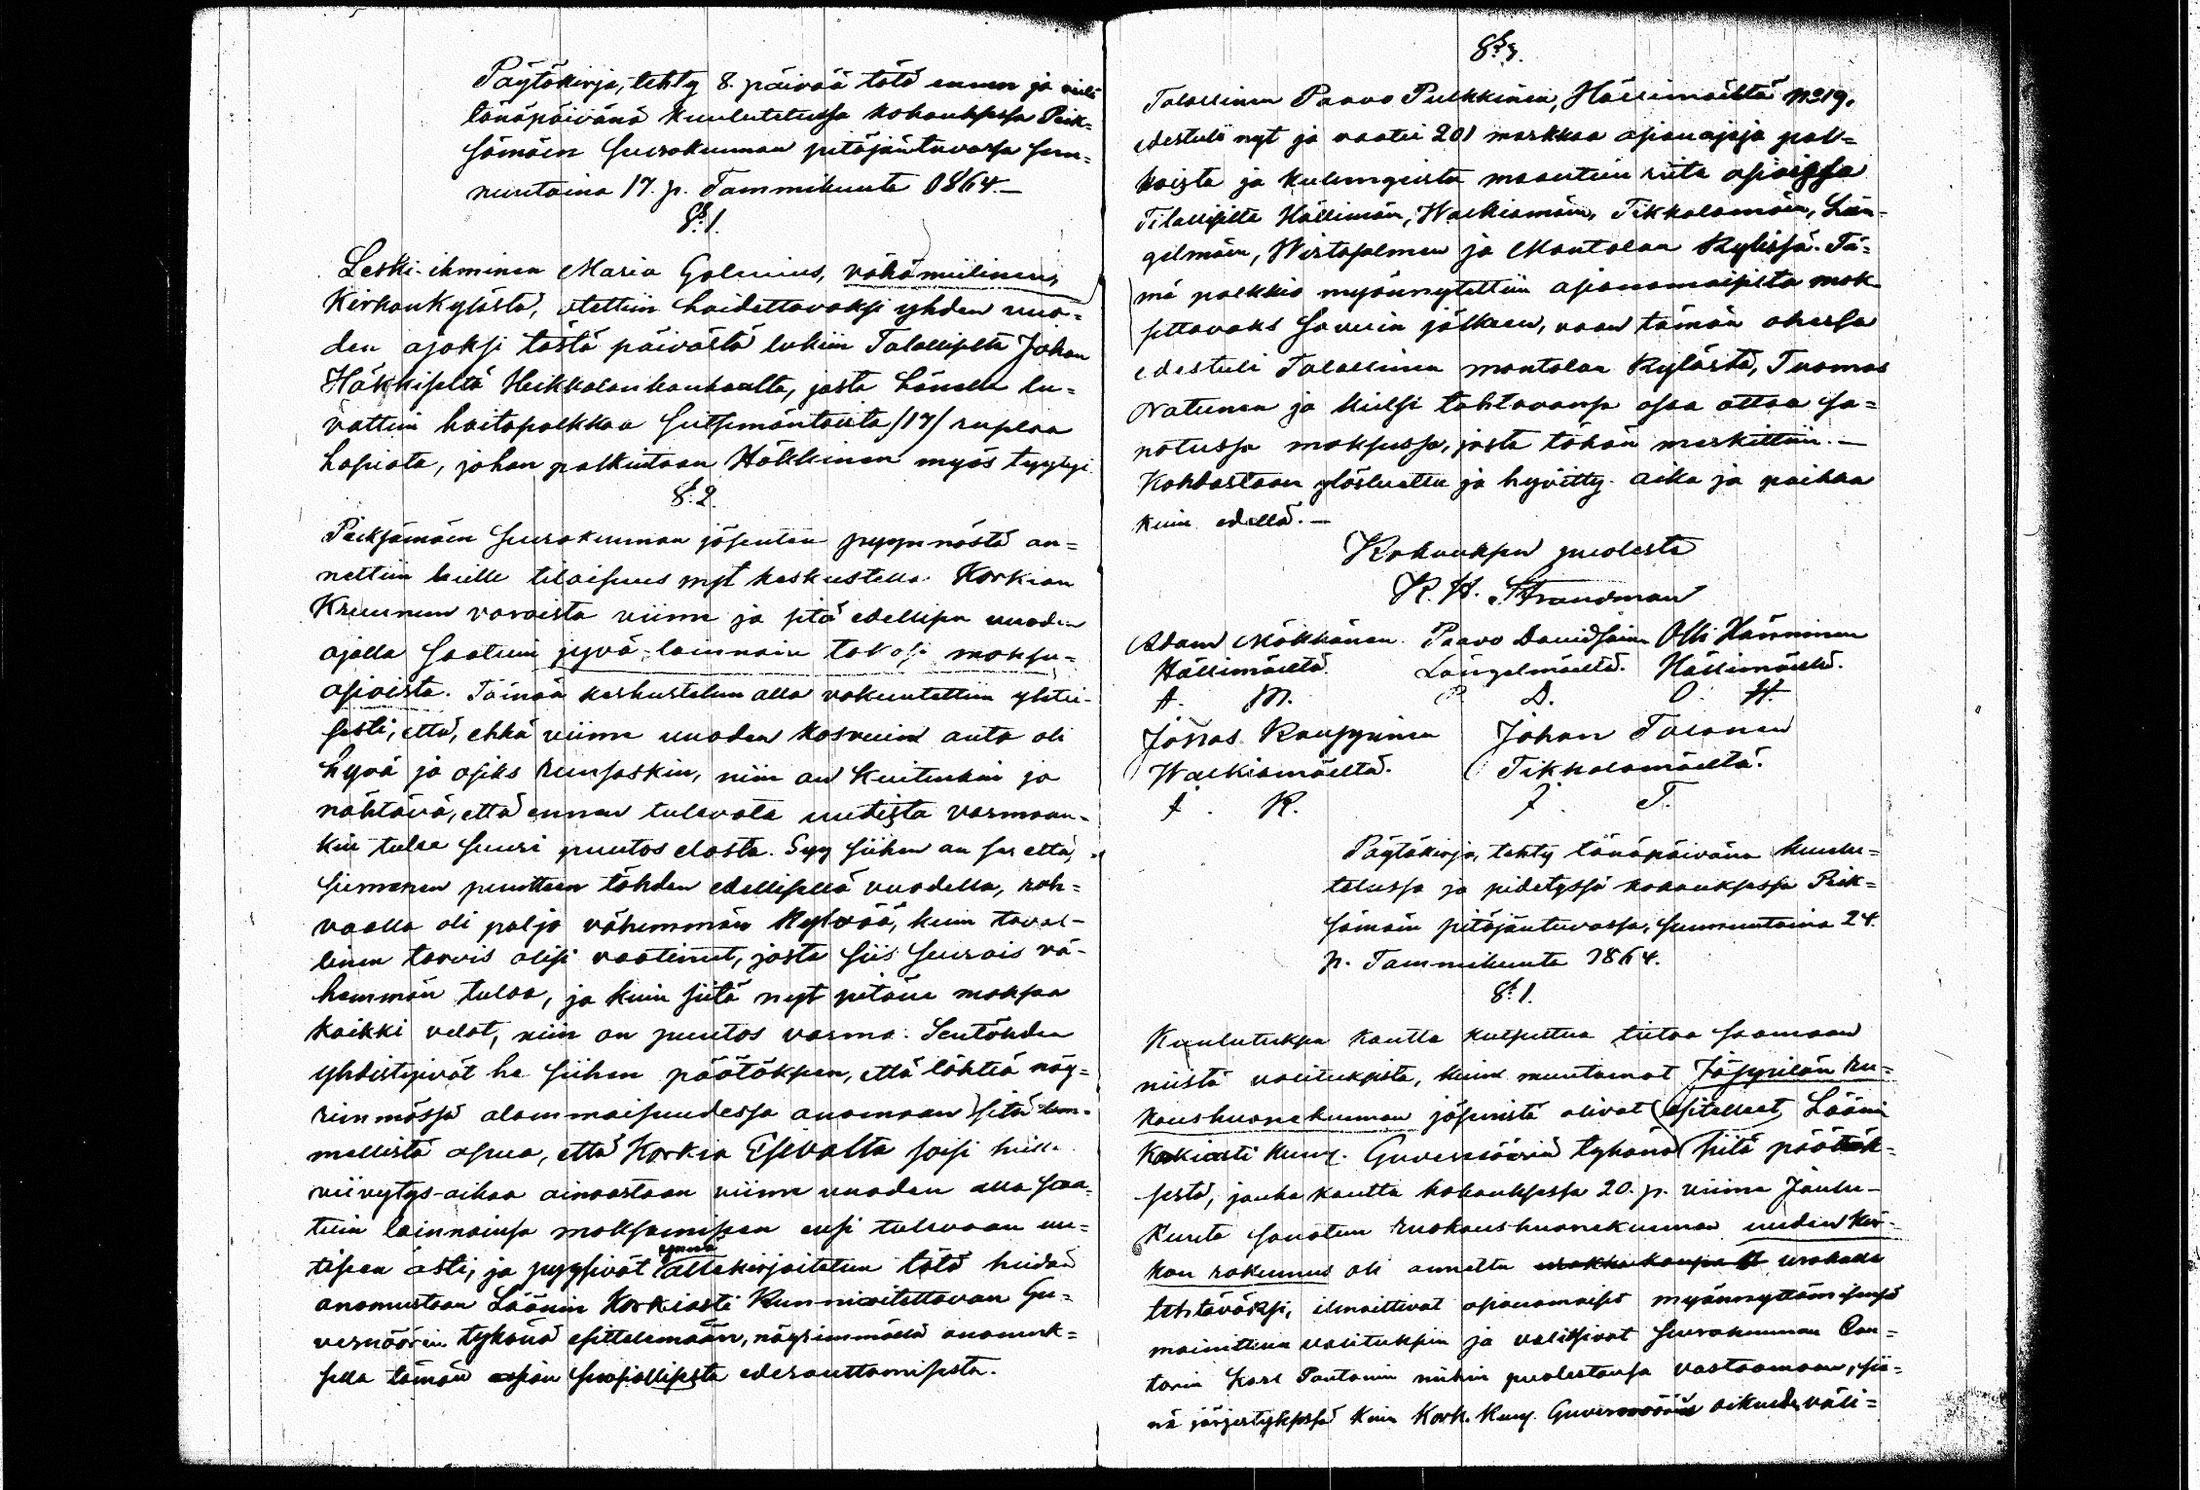 Päytäkirja, tehty 8. päivää tätä ennen ja vielä
tänäpäivänä kuulutetussa kokouksessa Piek-
sämäen seurakunnan pitäjäntuvassa sun-
nuntaina 17. p. Tammikuuta 1864.—
§ 1.
Leski-ihminen Maria Golenius, vähämielinen,
Kirkonkylästä, otettiin hoidettavaksi yhden vuo-
den ajaksi tästä päivästä lukein Talolliselta Johan
Häkkiseltä Heikkalan kankaalta, josta hänelle lu-
vattiin hoitopalkkaa seitsemäntoista /17/ ruplaa
hopiata, johon palkintoon Häkkinen myös tyytyi
§. 2.
Pieksämäen seurakunnan jäsenten pyynnöstä an-
nettiin heille tilaisuus nyt keskustella Korkian
Kruunun varoista viime ja sitä edellisen vuoden
ajalla saatuin jyvä-lainnain takasi maksu-
asioista. Tämän keskustelun alla vakuutettiin yhtei-
sesti, että, ehkä viime vuoden kasvuin anto oli
hyvä ja osiks runsaskin, niin on kuitenkin jo
nähtävä, että ennen tulevata uutista varmaan-
kin tulee suuri puutos elosta. Syy siihen on se että,
siemenen puutteen tähden edellisellä vuodella, rah-
vaalla oli paljo vähemmän kylvöä, kuin taval-
linen tarvis olisi vaatinut, josta siis seurais vä-
hemmän tuloa, ja kuin siitä nyt pitäis maksaa
kaikki velat, niin on puutos varma. Sentähden
yhdistyivät he siihen päätökseen, että lähteä näy-
rimmässä alammaisuudessa anomaan sitä ar-
mollista apua, että Korkia Esivalta soisi heille
viivytys-aikaa ainoastaan viime vuoden alla saa-
tuin lainnainsa maksamiseen ensi tulevaan uu-
tiseen asti, ja pyysivät allekirjoitetun tätä heidän
anomustaan Läänin Korkiasti Kunnioitettavan Gu-
vernöörin tykönä esittelemään, näyrimmällä anomuk-
sella tämän asian suosiollisesta edesauttamisesta.
§ 3.
Talollinen Paavo Pulkkinen, Hällimäeltä No 19.
edestuli nyt ja vaatei 201 markkaa asianajaja pal-
koista ja kulungeista maantien riita asioissa
Tilallisilta Hällimäen, Walkiamäen, Tikkalamäen, Län-
gelmäen, Wirtasalmen ja Montolan Kylissä. Tä-
mä palkkio myönnytettiin asianomaisilta mak-
settavaks savuin jälkeen, vaan tämän ohessa
edestuli Talollinen Montolan Kylästä, Tuomas
ja kielsi tahtovansa osaa ottaa sa-
notussa maksussa, josta tähän merkittiin.—
Kohdastaan ylösluettu ja hyvitty. aika ja paikka
kuin edellä.—
Kokouksen puolesta
K. H. Strandman
Adam Mökkänen. Paavo Davidsainen Olli Hänninen
Hällimäeltä. Längelmäeltä. Hällimäeltä.
A. M. P. D. O. H.
Johan Talonen
Walkiamäeltä. Tikkalamäeltä.
J. T.
Päytäkirja, tehty tänäpäivänä kuulu-
telussa ja pidetyssä kokouksessa Piek-
sämäen pitäjäntuvassa, sunnuntaina 24.
p. Tammikuuta 1864.
§ 1.
Kuulutuksen kautta kutsuttua tietoa saamaan
niistä valituksista, kuin muutamat Jäppilän ru-
koushuonekunnan jäsenistä olivat esitelleet Läänin
Korkiasti kunn. Guvernöörin tykönä siitä päätök-
sestä, jonka kautta kokouksessa 20. p. viime Joulu-
kuuta sanotun rukoushuonekunnan uuden kir-
kon rakennus oli annettu urakalla
tehtäväksi, ilmoittivat asianomaiset myönnyttämisensä
mainittuin valituksiin ja valitsivat seurakunnan Can-
torin Karl Pantanin niihin puolestansa vastaamaan, sii-
nä järjestyksessä kuin Kork. Kunn. Guvernöörin oikeudesväli-